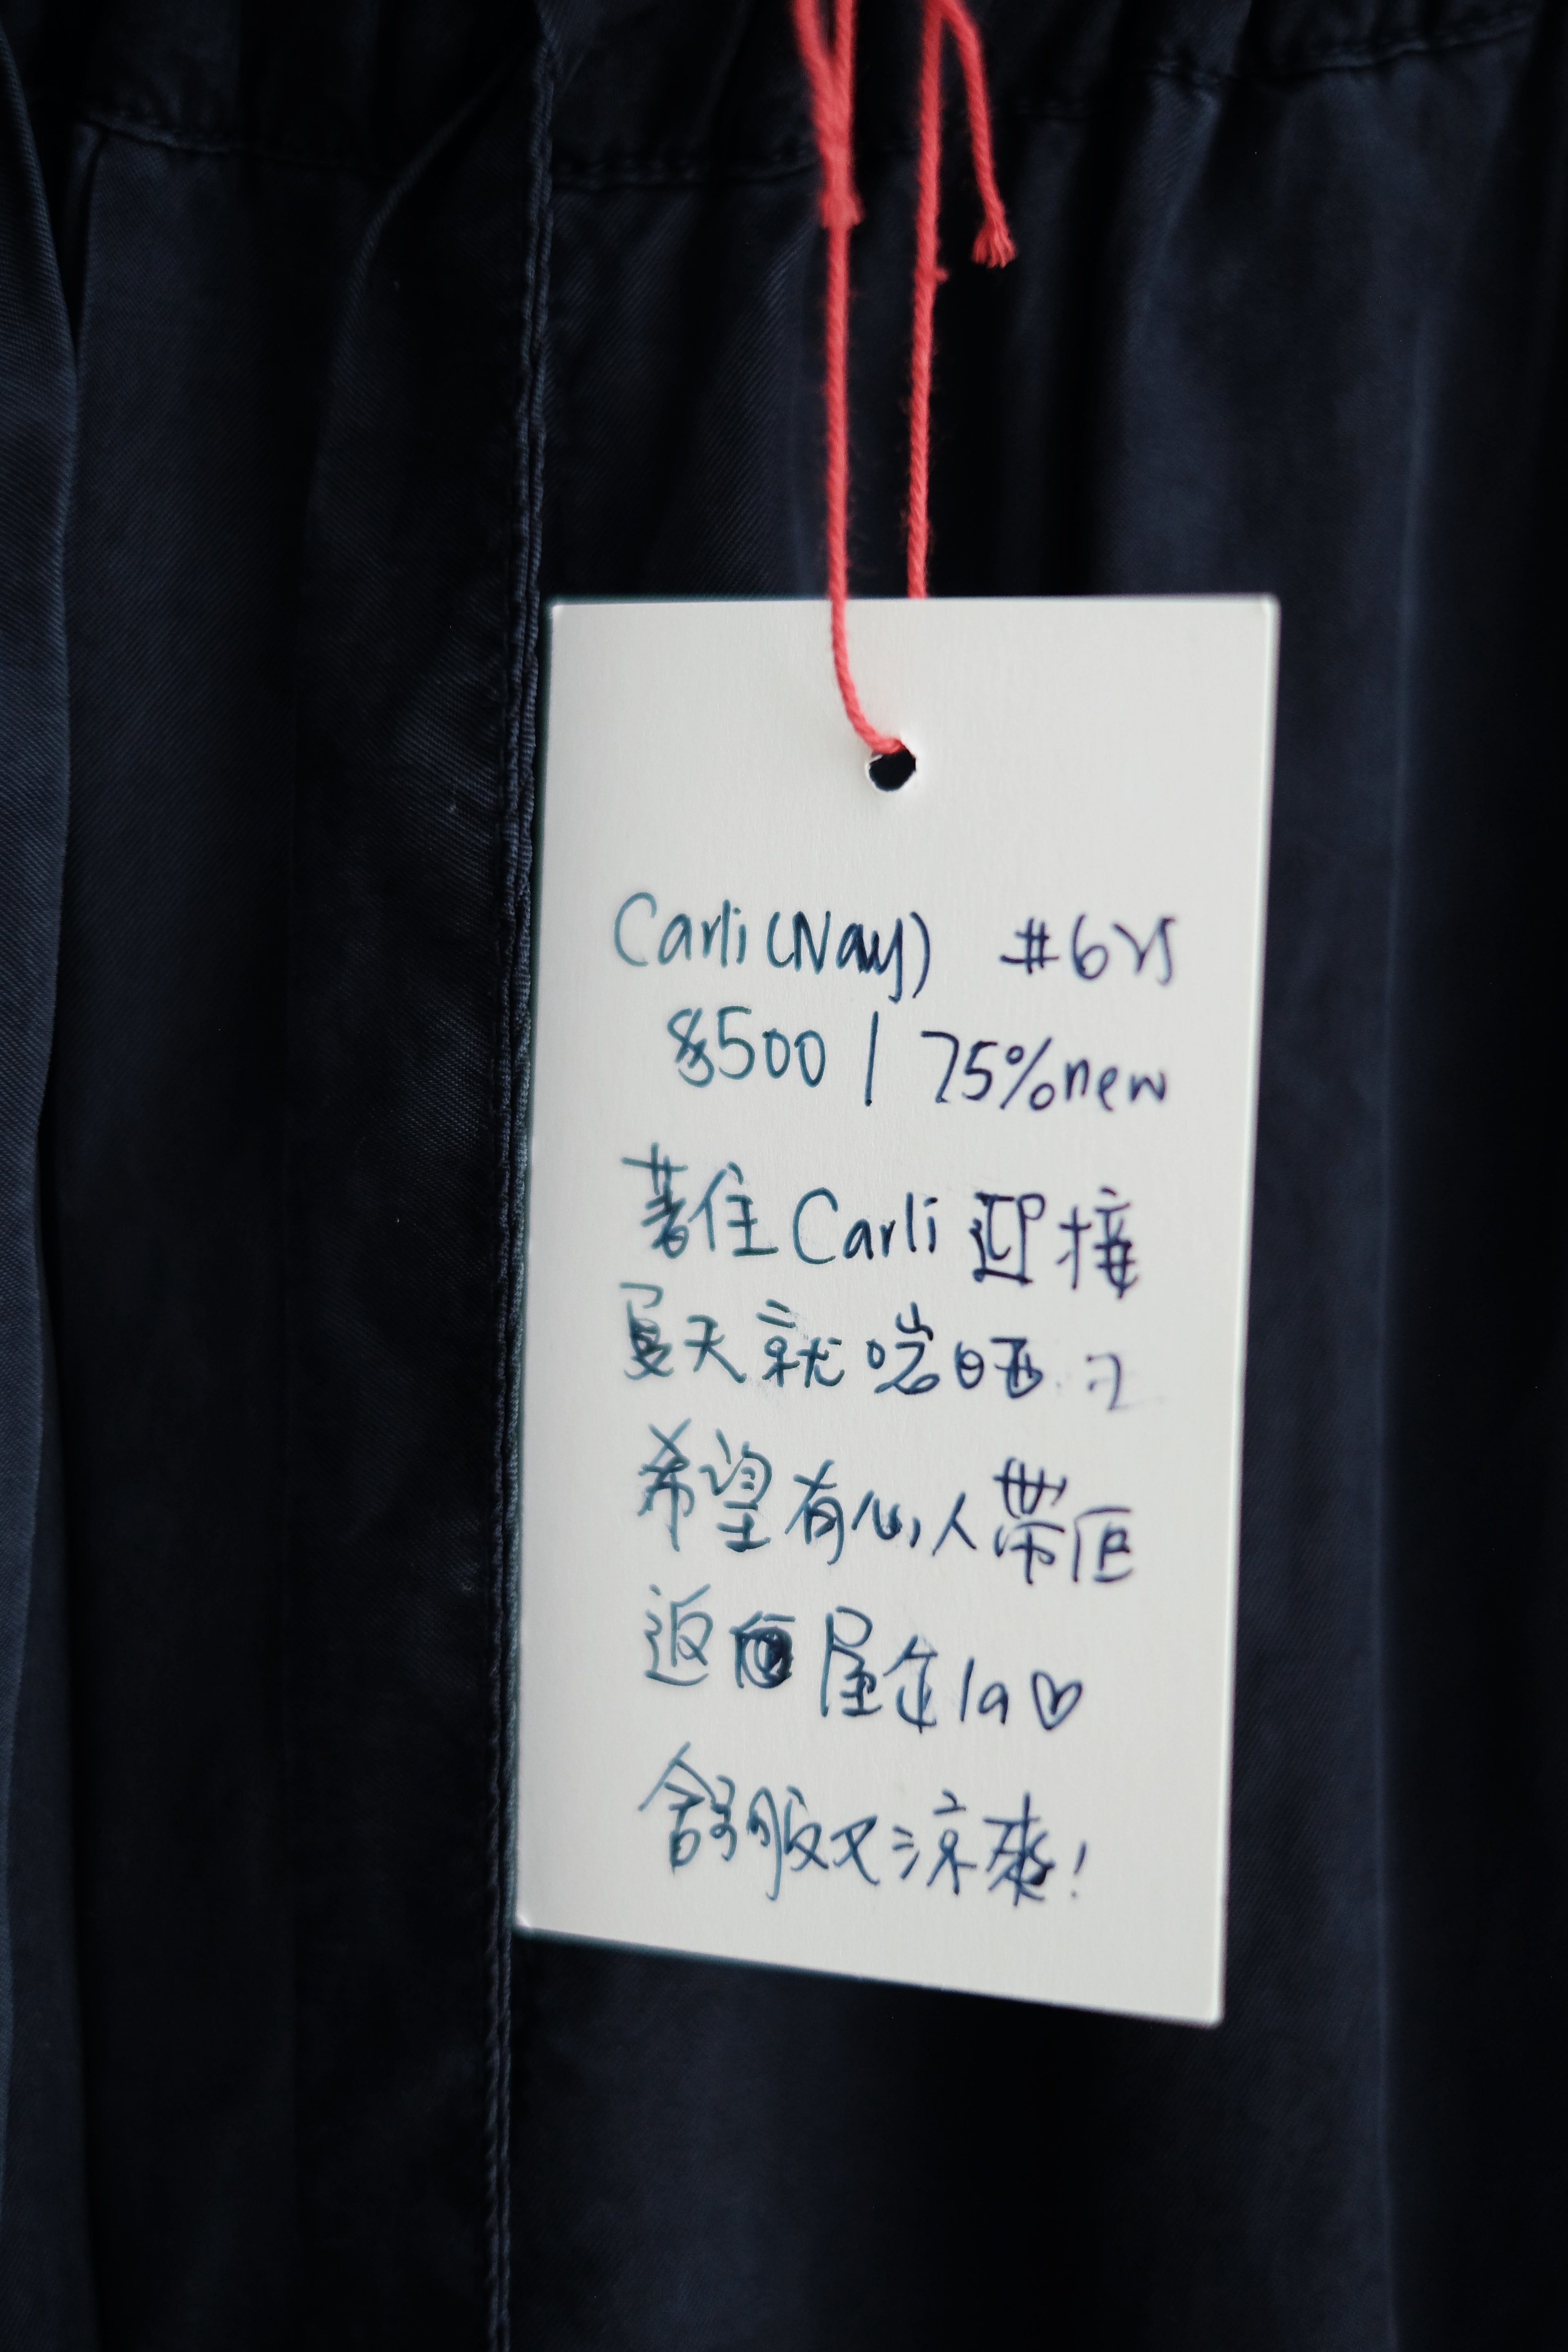 Carli (Navy) #6號
$500 | 75% new
著住 Carli 迎接
夏天就啱晒
希望有心人帶佢
返屋企la♡
舒服又涼爽!